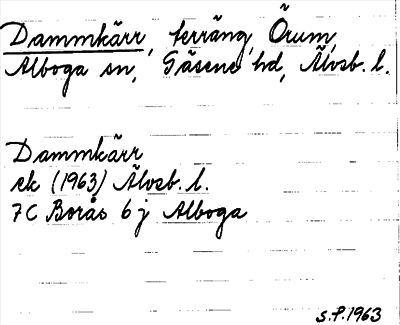 Dammkärr, terräng, Örum,
Alboga sn, Gäsene hd, Älvsb. l.
Dammkärr
ek (1963) Älvsb. l.
7C Borås 6 j Alboga
S.P. 1963